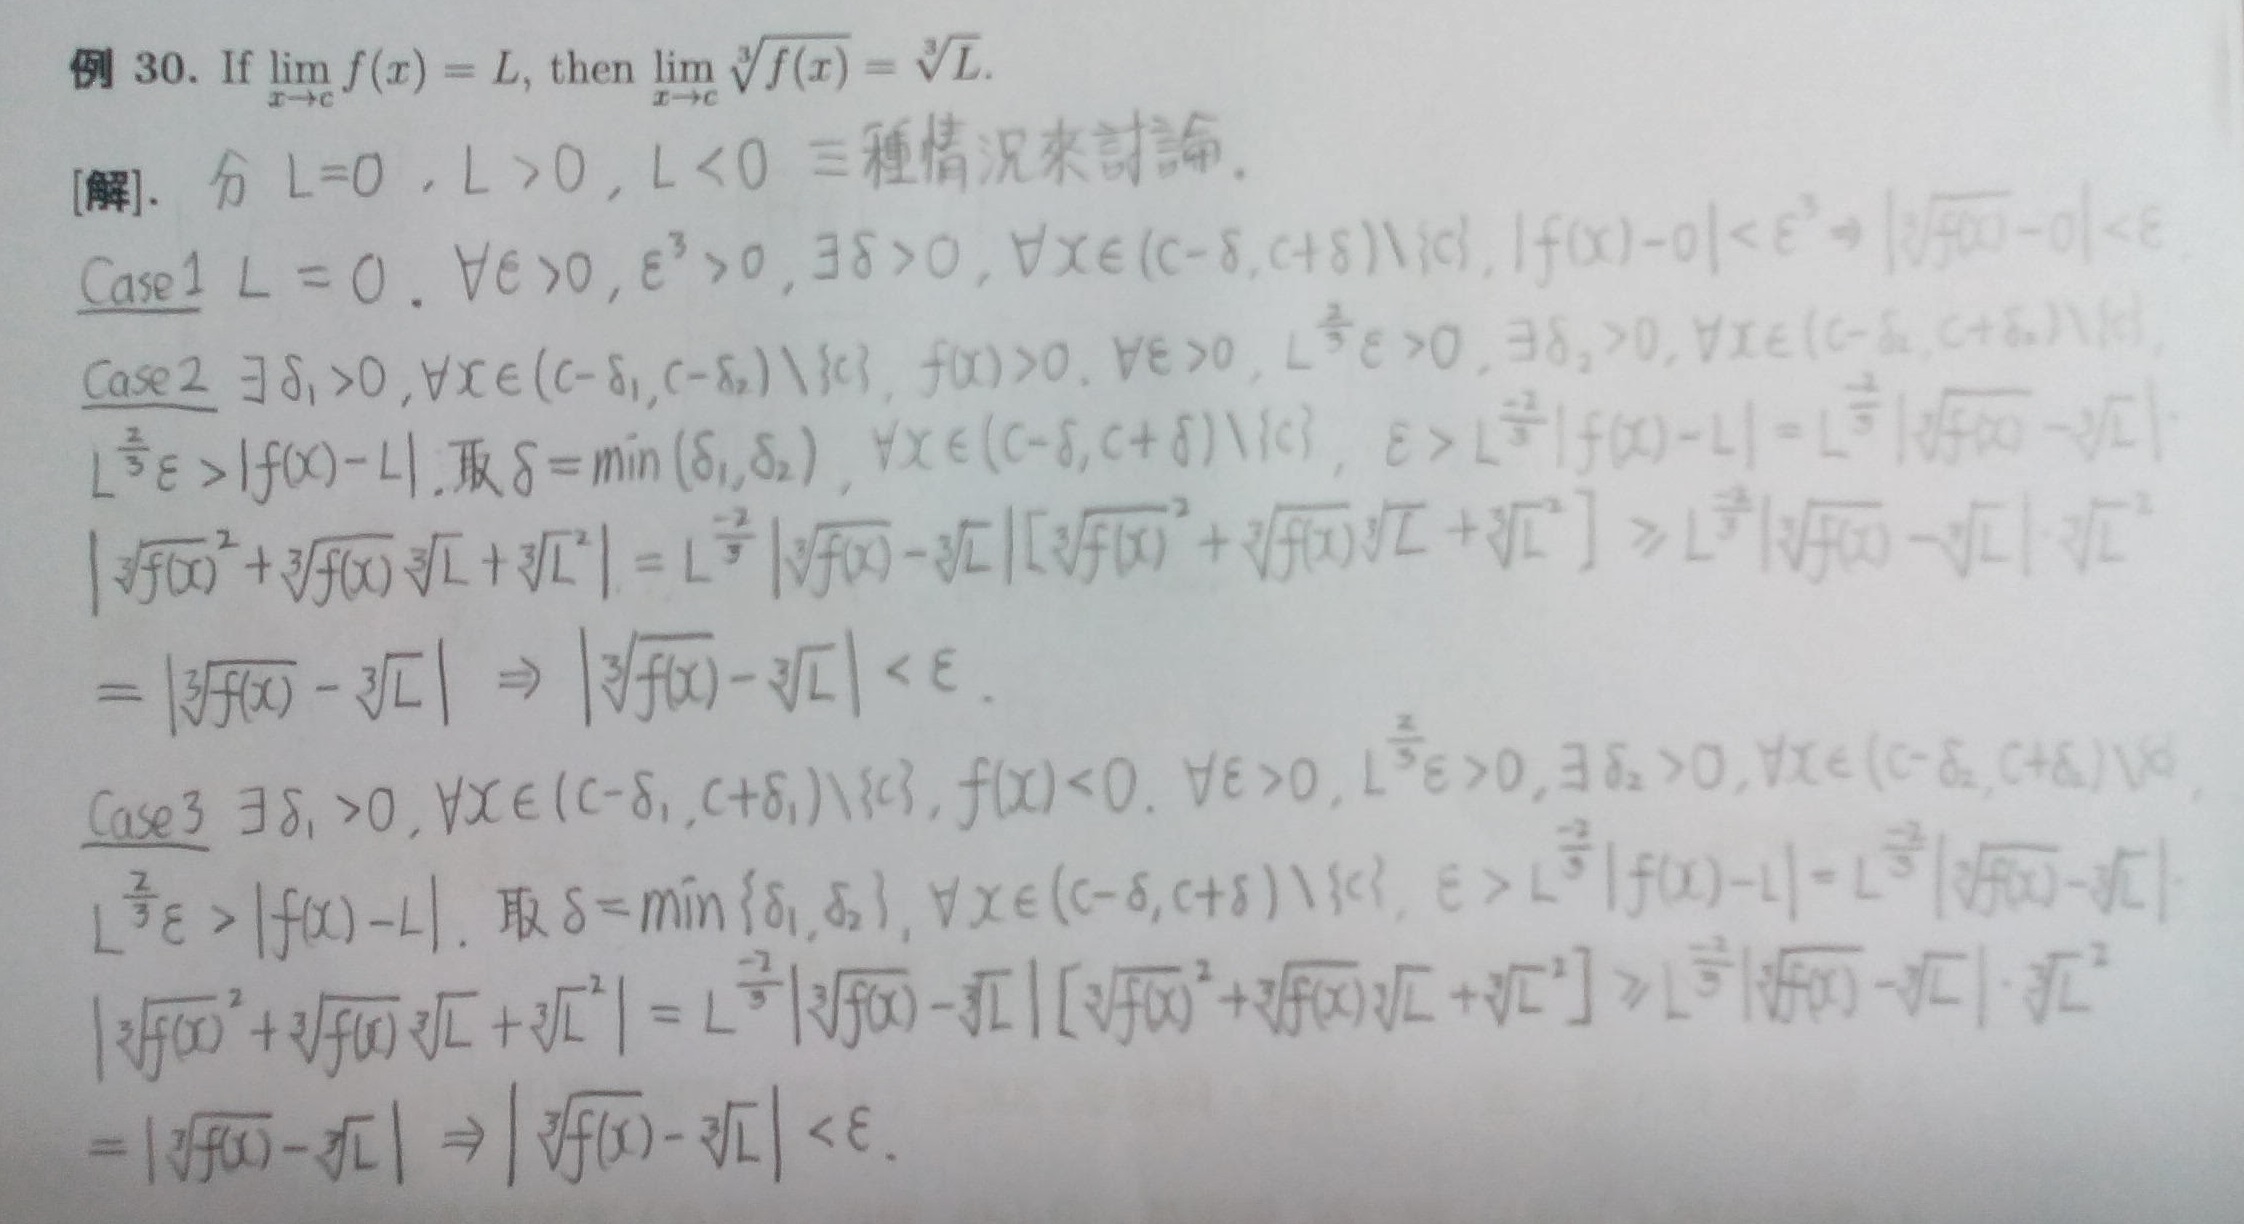 例 30. If lim_{x→c} f(x) = L, then lim_{x→c} ∛f(x) = ∛L.
[解]. 分 L=0 , L>0 , L<0 三種情況來討論.
Case1 L = 0 . ∀ε>0, ε³>0, ∃δ>0, ∀x∈(c-δ,c+δ)\{c}, |f(x)-0|<ε³ ⇒ |∛f(x)-0|<ε.
Case2 ∃δ₁>0, ∀x∈(c-δ₁,c-δ₂)\{c}, f(x)>0. ∀ε>0, L^{2/3}ε>0, ∃δ₂>0, ∀x∈(c-δ₂,c+δ₂)\{c},
L^{2/3}ε>|f(x)-L|. 取 δ=min(δ₁,δ₂), ∀x∈(c-δ,c+δ)\{c}, ε>L^{-2/3}|f(x)-L|=L^{-2/3}|∛f(x)-∛L|·
|∛f(x)²+∛f(x)∛L+∛L²| = L^{-2/3}|∛f(x)-∛L|[∛f(x)²+∛f(x)∛L+∛L²] ≥ L^{-2/3}|∛f(x)-∛L|·∛L²
= |∛f(x)-∛L| ⇒ |∛f(x)-∛L| < ε.
Case3 ∃δ₁>0, ∀x∈(c-δ₁,c+δ₁)\{c}, f(x)<0. ∀ε>0, L^{2/3}ε>0, ∃δ₂>0, ∀x∈(c-δ₂,c+δ₂)\{c},
L^{2/3}ε > |f(x)-L|. 取 δ=min{δ₁,δ₂}, ∀x∈(c-δ,c+δ)\{c}, ε>L^{-2/3}|f(x)-L|=L^{-2/3}|∛f(x)-∛L|·
|∛f(x)²+∛f(x)∛L+∛L²| = L^{-2/3}|∛f(x)-∛L|[∛f(x)²+∛f(x)∛L+∛L²] ≥ L^{-2/3}|∛f(x)-∛L|·∛L²
= |∛f(x)-∛L| ⇒ |∛f(x)-∛L| <ε.